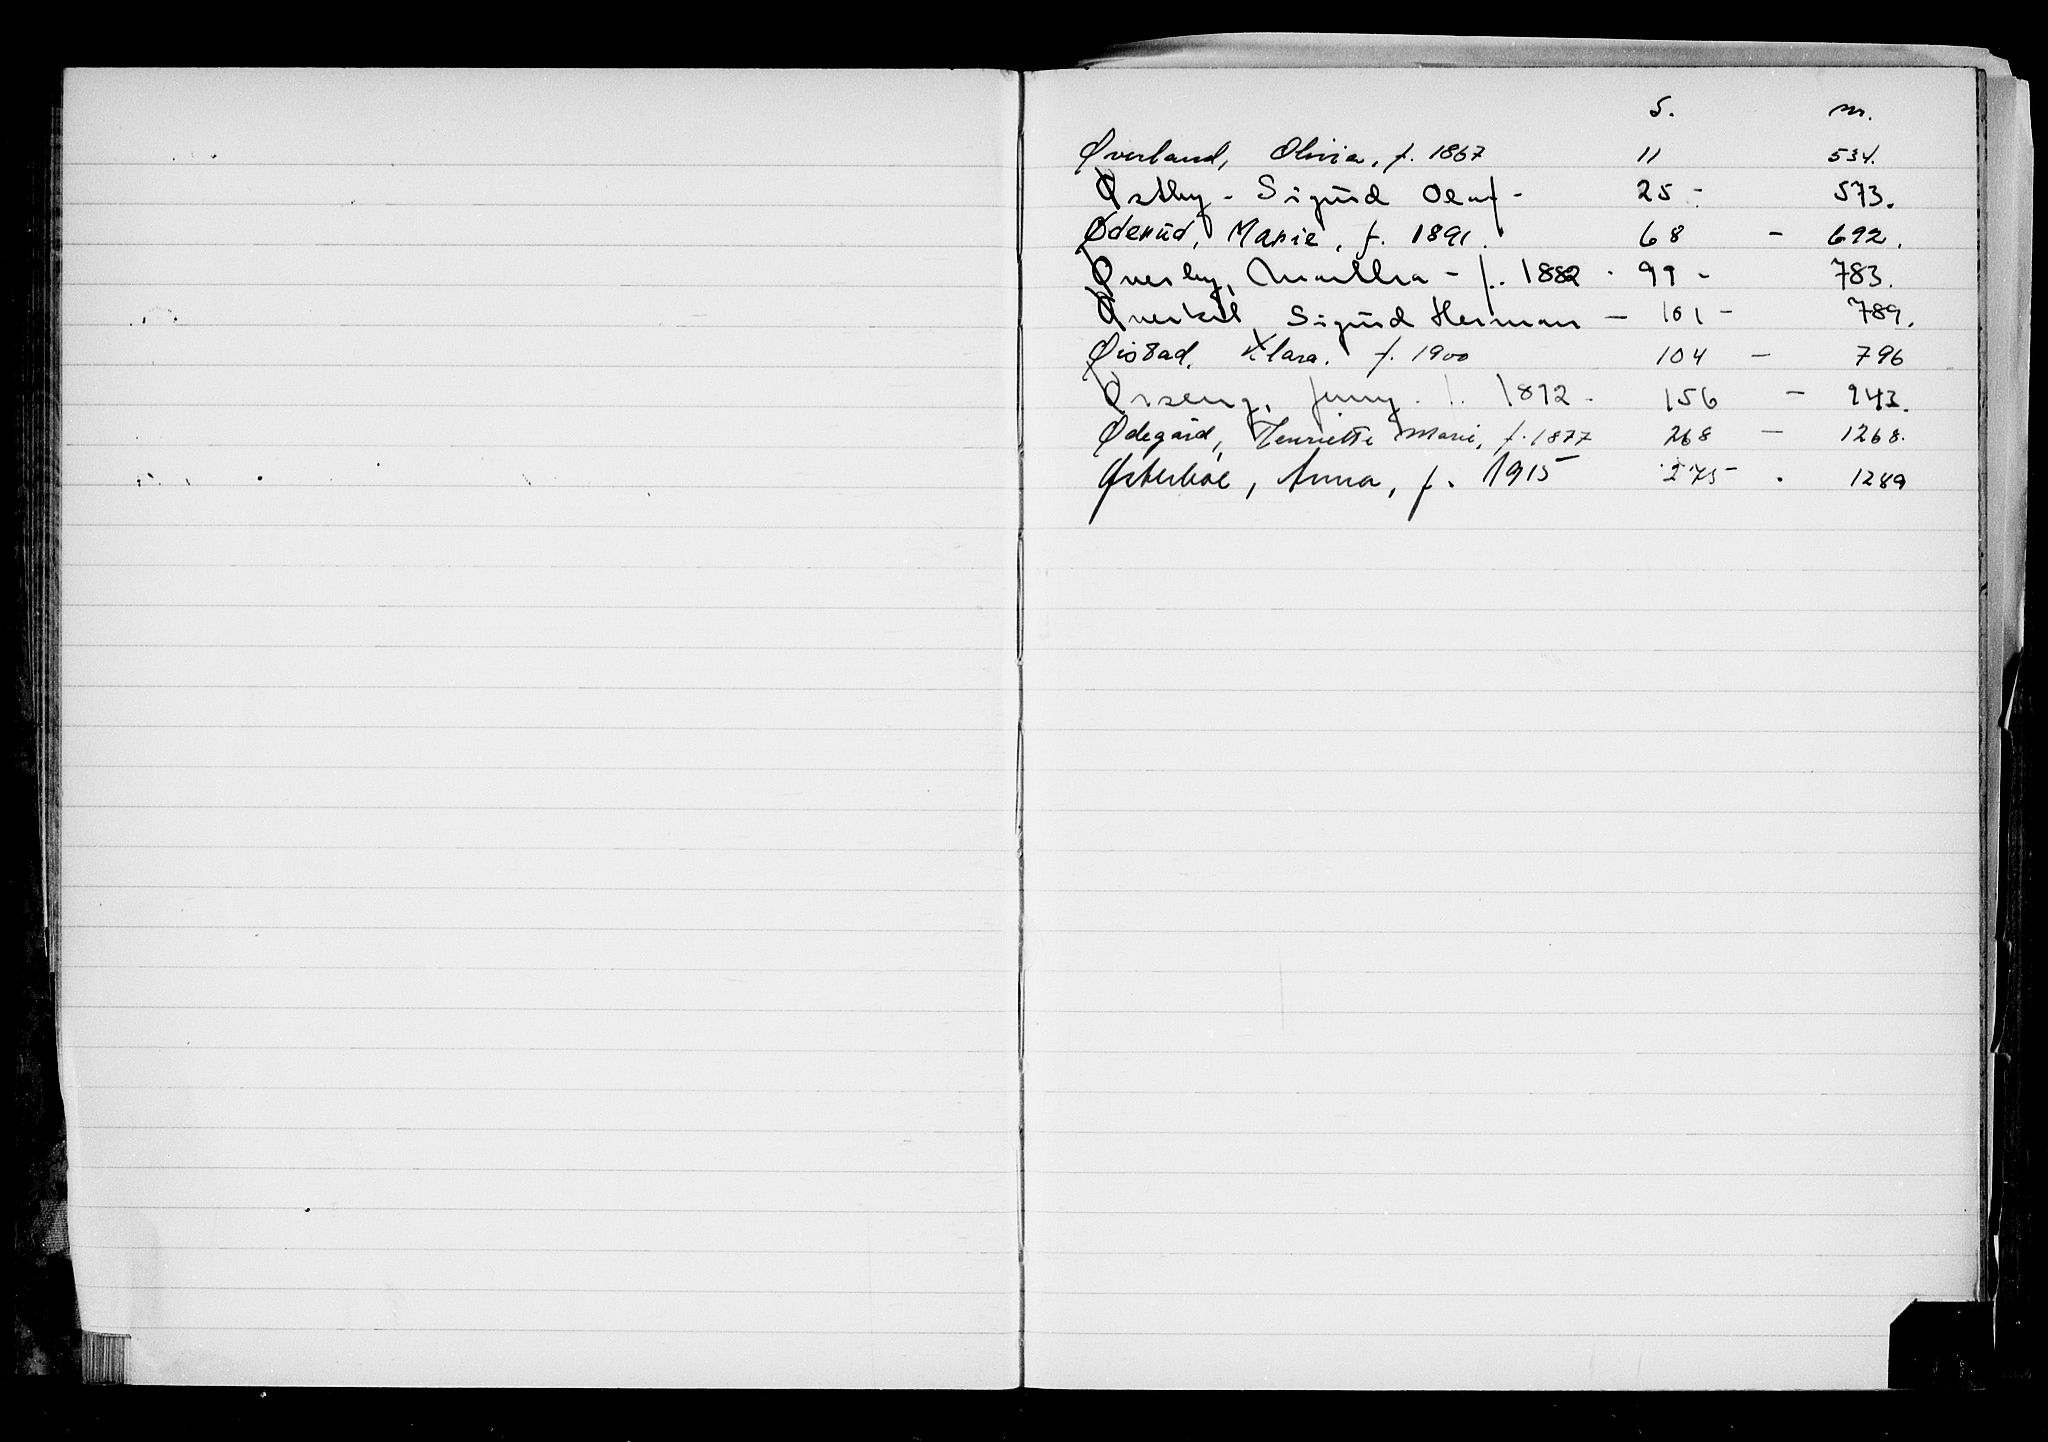 S. nr.
Øverland, Olivia, f. 1867 11 534.
Østby - Sigurd Olaf - 25 - 573.
Øderud, Marie, f. 1891. 68 - 692.
Øverby, Martha - f. 1882 - 99 - 783.
Øverkil, Sigurd Herman - 101 - 789.
Øistad, Klara. f. 1900 104 - 796
Ørseng, Jenny. f. 1892 - 156 - 943.
Ødegård, Henriette Marie, f. 1877 268 - 1268.
Østerböe, Anna, f. 1915 275 . 1289